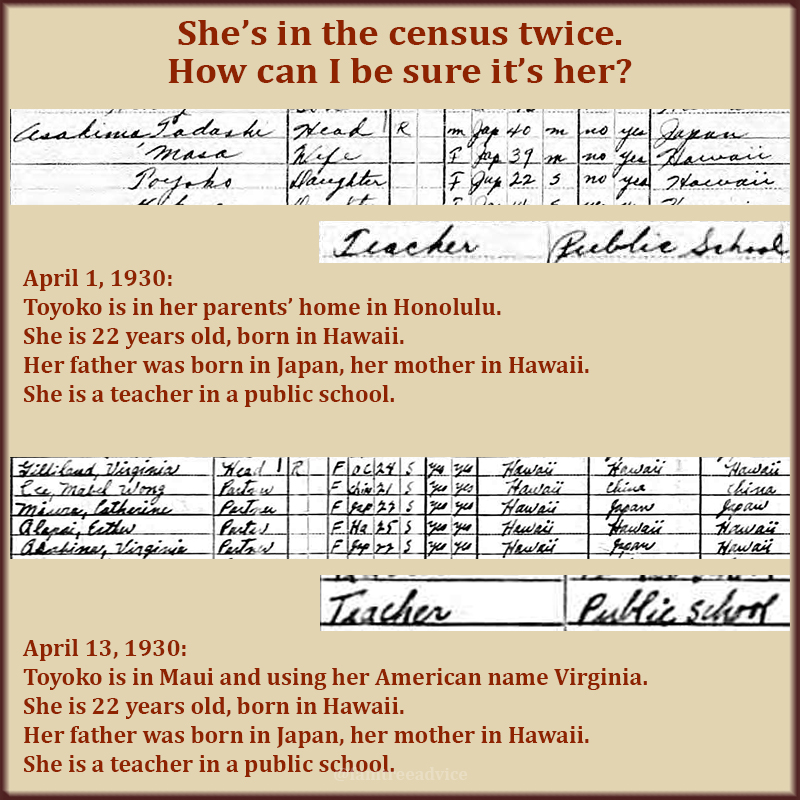 She's in the census twice.
How can I be sure it's her?
Asakima Tadashi Head R m Jap 40 m no yes Japan
" Masa Wife F Jap 39 m no yes Hawaii
Toyoko Daughter F Jap 22 s no yes Hawaii
Teacher Public School
April 1, 1930:
Toyoko is in her parents' home in Honolulu.
She is 22 years old, born in Hawaii.
Her father was born in Japan, her mother in Hawaii.
She is a teacher in a public school.
Gilliland, Virginia Head R F 24 S yes yes Hawaii Hawaii Hawaii
Mabel Wong Partner F Chin 21 S yes yes Hawaii China China
Miura, Catherine Partner F Jap S yes yes Hawaii Japan Japan
Esther Partner F Ha 25 S yes yes Hawaii Hawaii Hawaii
Asakima, Virginia Partner F Jap 22 S yes yes Hawaii Japan Hawaii
Teacher Public school
April 13, 1930:
Toyoko is in Maui and using her American name Virginia.
She is 22 years old, born in Hawaii.
Her father was born in Japan, her mother in Hawaii.
She is a teacher in a public school.